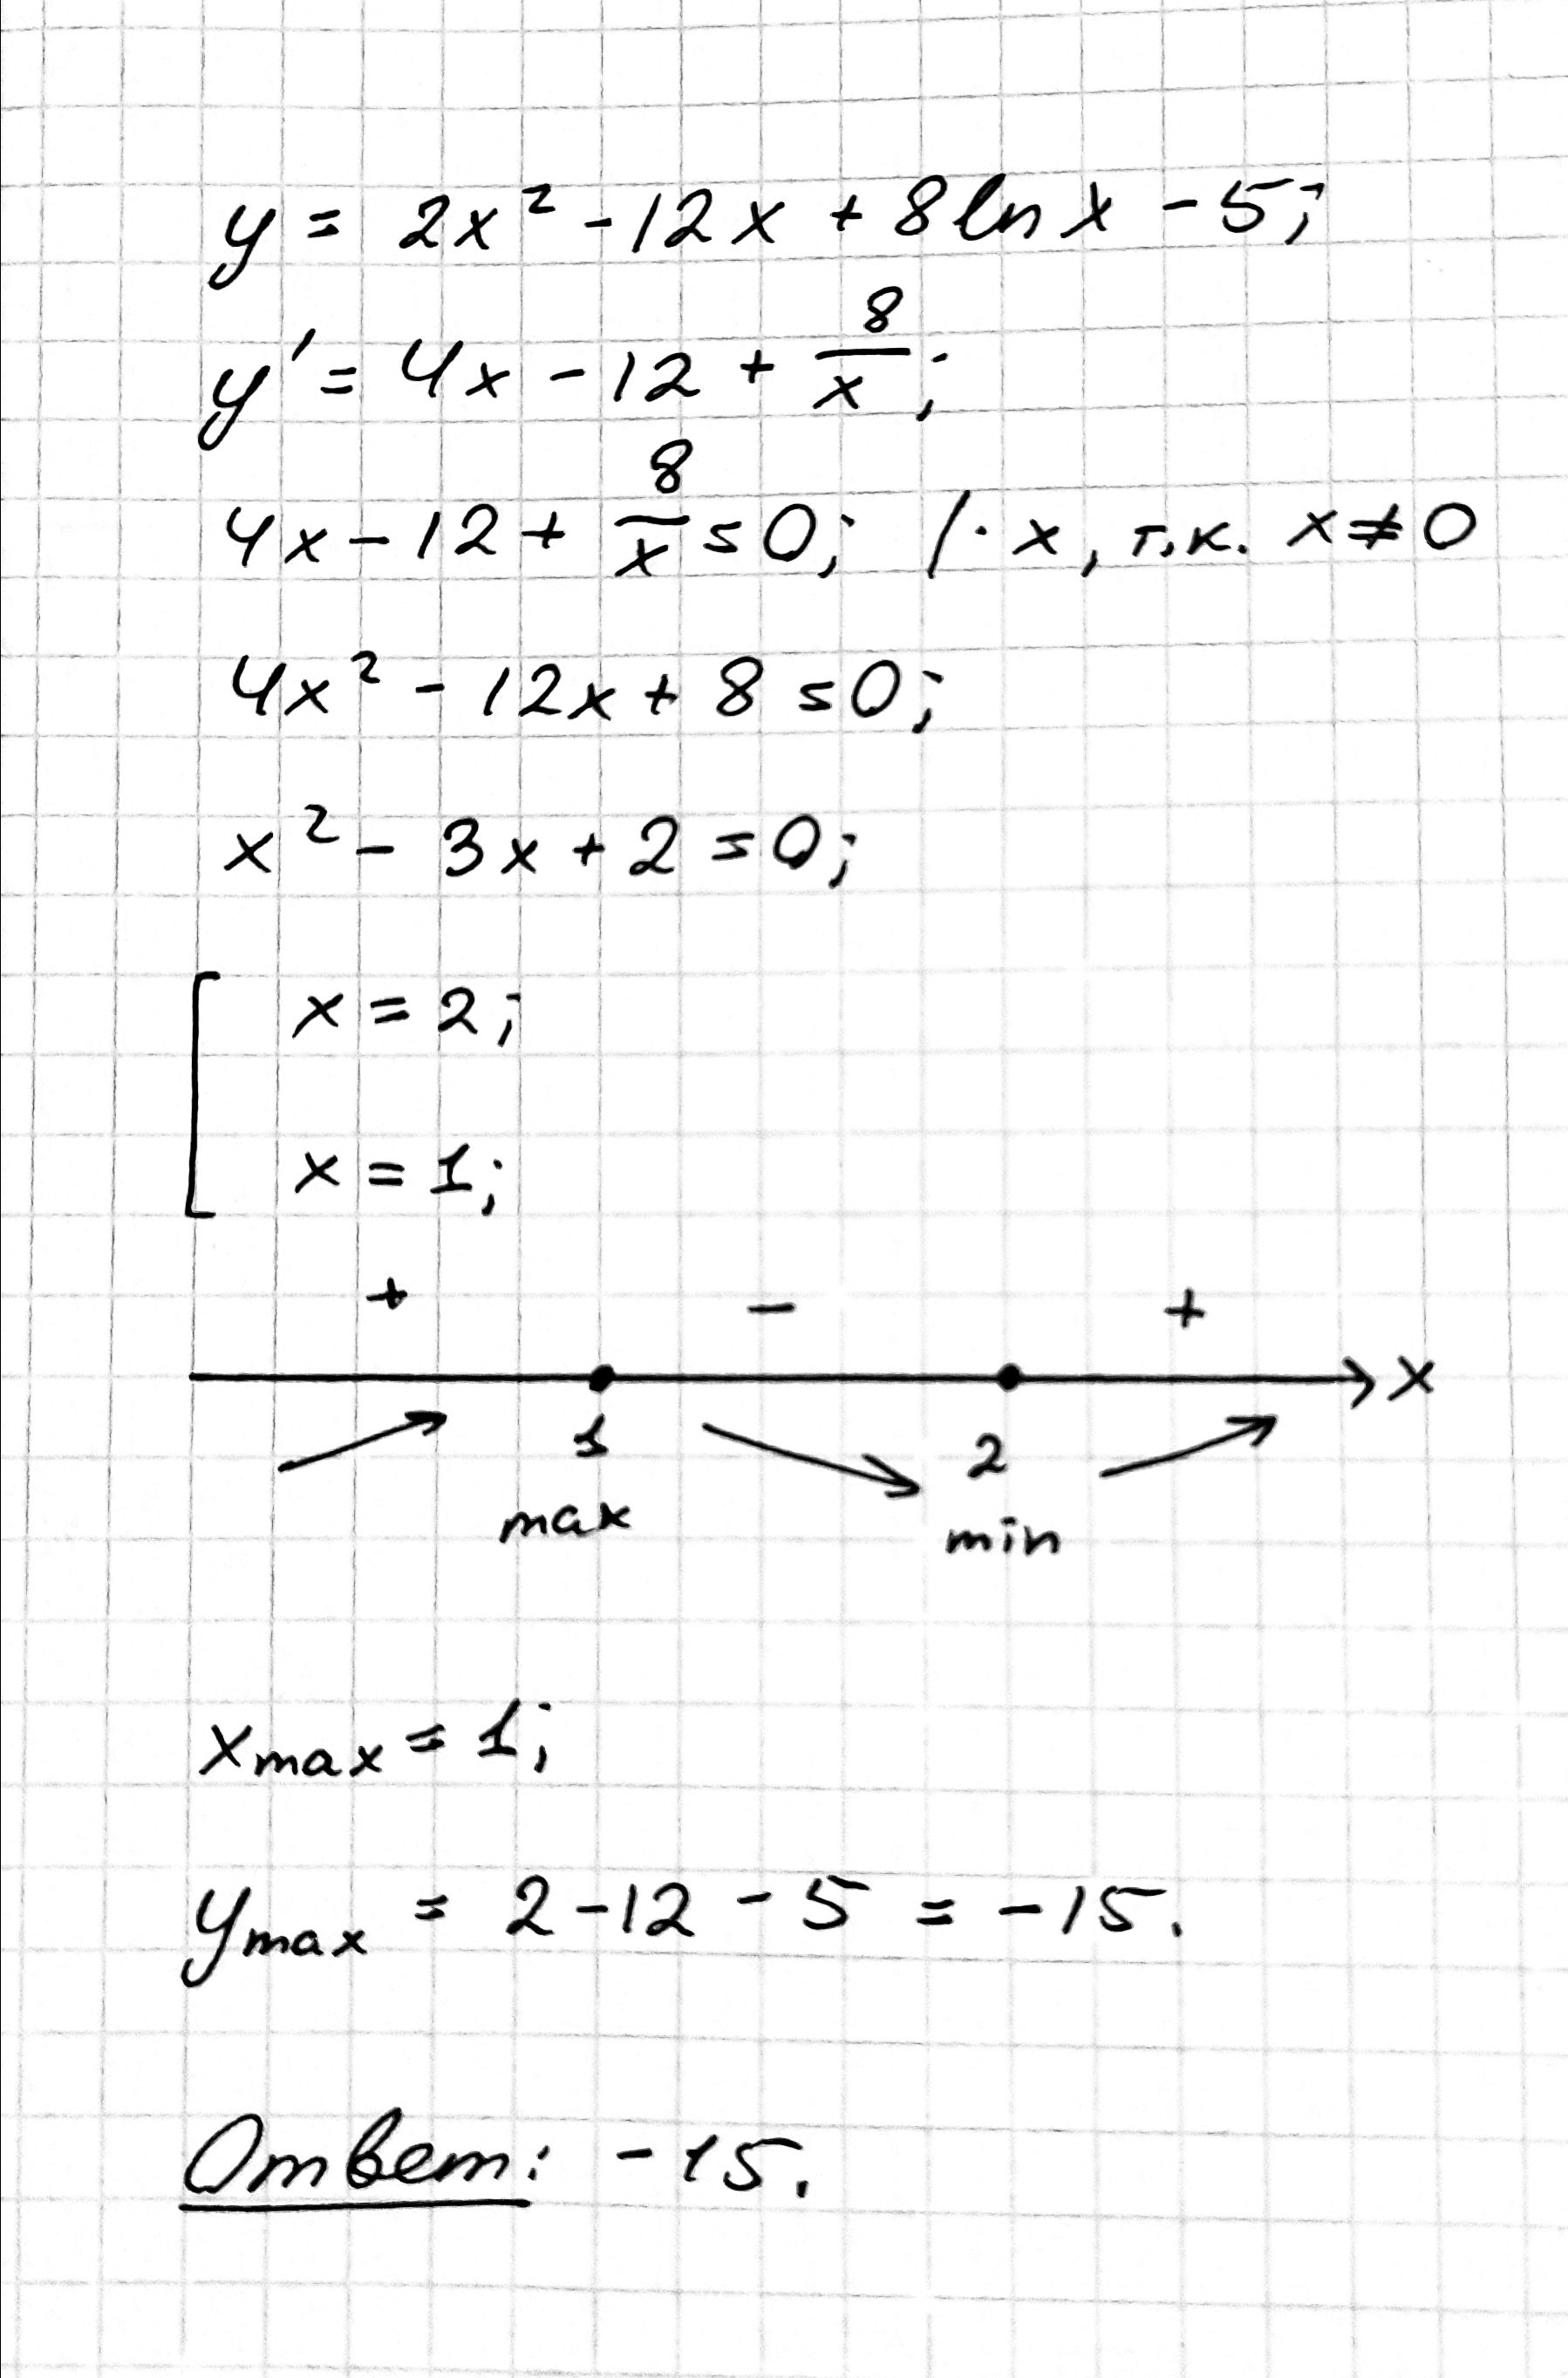 y = 2x² - 12x + 8 ln x - 5;
y' = 4x - 12 + 8/x;
4x - 12 + 8/x = 0; /· x, т.к. x ≠ 0
4x² - 12x + 8 = 0;
x² - 3x + 2 = 0;
[ x = 2;
x = 1;
+ - +
x
1 2
max min
x max = 1;
y max = 2 - 12 - 5 = -15.
Ответ: -15.